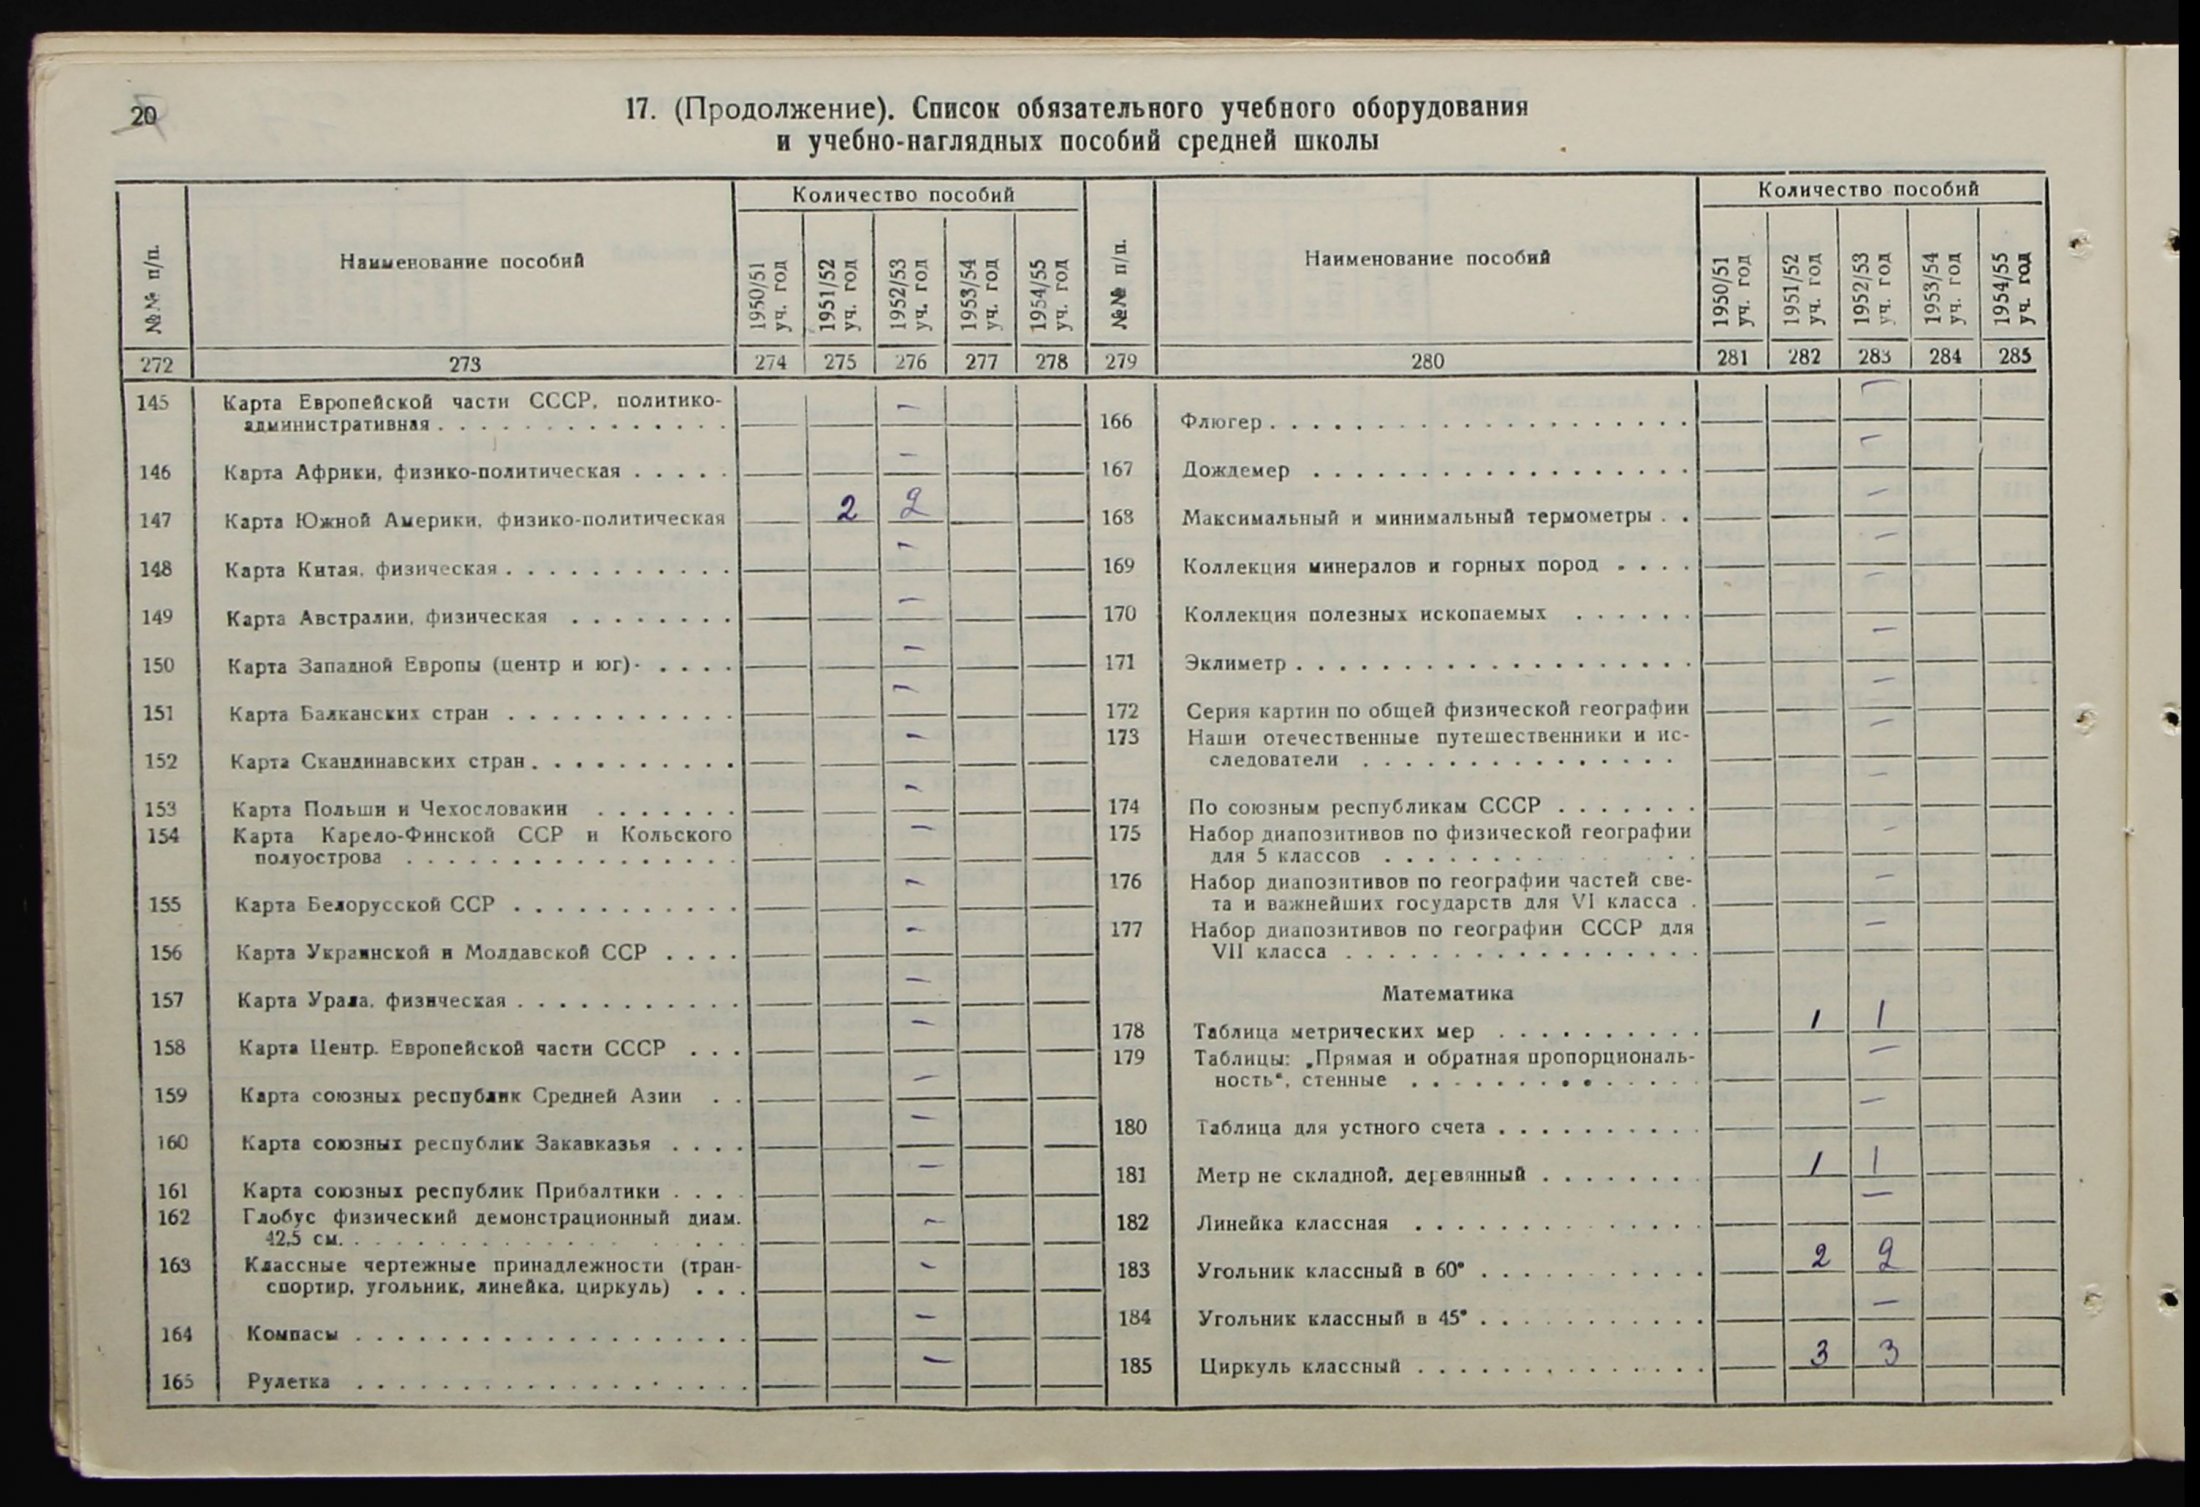 20
17. (Продолжение). Список обязательного учебного оборудования
и учебно-наглядных пособий средней школы
№№ п/п.
Наименование пособий
Количество пособий
1950/51 уч. год
1951/52 уч. год
1952/53 уч. год
1953/54 уч. год
1954/55 уч. год
№№ п/п.
Наименование пособий
Количество пособий
1950/51 уч. год
1951/52 уч. год
1952/53 уч. год
1953/54 уч. год
1954/55 уч. год
272 273 274 275 276 277 278 279 280 281 282 283 284 285
145 Карта Европейской части СССР, политико-
административная . . . . . . . . . . . . . . —
146 Карта Африки, физико-политическая . . . . . —
147 Карта Южной Америки, физико-политическая 2 2
148 Карта Китая, физическая . . . . . . . . . . . —
149 Карта Австралии, физическая . . . . . . . . —
150 Карта Западной Европы (центр и юг) . . . . . —
151 Карта Балканских стран . . . . . . . . . . . —
152 Карта Скандинавских стран . . . . . . . . . . —
153 Карта Польши и Чехословакии . . . . . . . —
154 Карта Карело-Финской ССР и Кольского
полуострова . . . . . . . . . . . . . . . . —
155 Карта Белорусской ССР . . . . . . . . . . . —
156 Карта Украинской и Молдавской ССР . . . . —
157 Карта Урала, физическая . . . . . . . . . . . —
158 Карта Центр. Европейской части СССР . . . —
159 Карта союзных республик Средней Азии . . —
160 Карта союзных республик Закавказья . . . . —
161 Карта союзных республик Прибалтики . . . . —
162 Глобус физический демонстрационный диам.
42,5 см. . . . . . . . . . . . . . . . . —
163 Классные чертежные принадлежности (тран-
спортир, угольник, линейка, циркуль) . . . —
164 Компасы . . . . . . . . . . . . . . . . . . —
165 Рулетка . . . . . . . . . . . . . . . . . . —
166 Флюгер . . . . . . . . . . . . . . . . . . . —
167 Дождемер . . . . . . . . . . . . . . . . . —
168 Максимальный и минимальный термометры . . —
169 Коллекция минералов и горных пород . . . . —
170 Коллекция полезных ископаемых . . . . . . —
171 Эклиметр . . . . . . . . . . . . . . . . . . —
172 Серия картин по общей физической географии —
173 Наши отечественные путешественники и ис-
следователи . . . . . . . . . . . . . . . —
174 По союзным республикам СССР . . . . . . . —
175 Набор диапозитивов по физической географии
для 5 классов . . . . . . . . . . . . . . —
176 Набор диапозитивов по географии частей све-
та и важнейших государств для VI класса . —
177 Набор диапозитивов по географии СССР для
VII класса . . . . . . . . . . . . . . . . . —
Математика
178 Таблица метрических мер . . . . . . . . . . 1 1
179 Таблицы: „Прямая и обратная пропорциональ-
ность“, стенные . . . . . . . . . . . . . —
180 Таблица для устного счета . . . . . . . . . . —
181 Метр не складной, деревянный . . . . . . . . 1 1
182 Линейка классная . . . . . . . . . . . . . —
183 Угольник классный в 60° . . . . . . . . . . . 2 2
184 Угольник классный в 45° . . . . . . . . . . . —
185 Циркуль классный . . . . . . . . . . . . . . 3 3